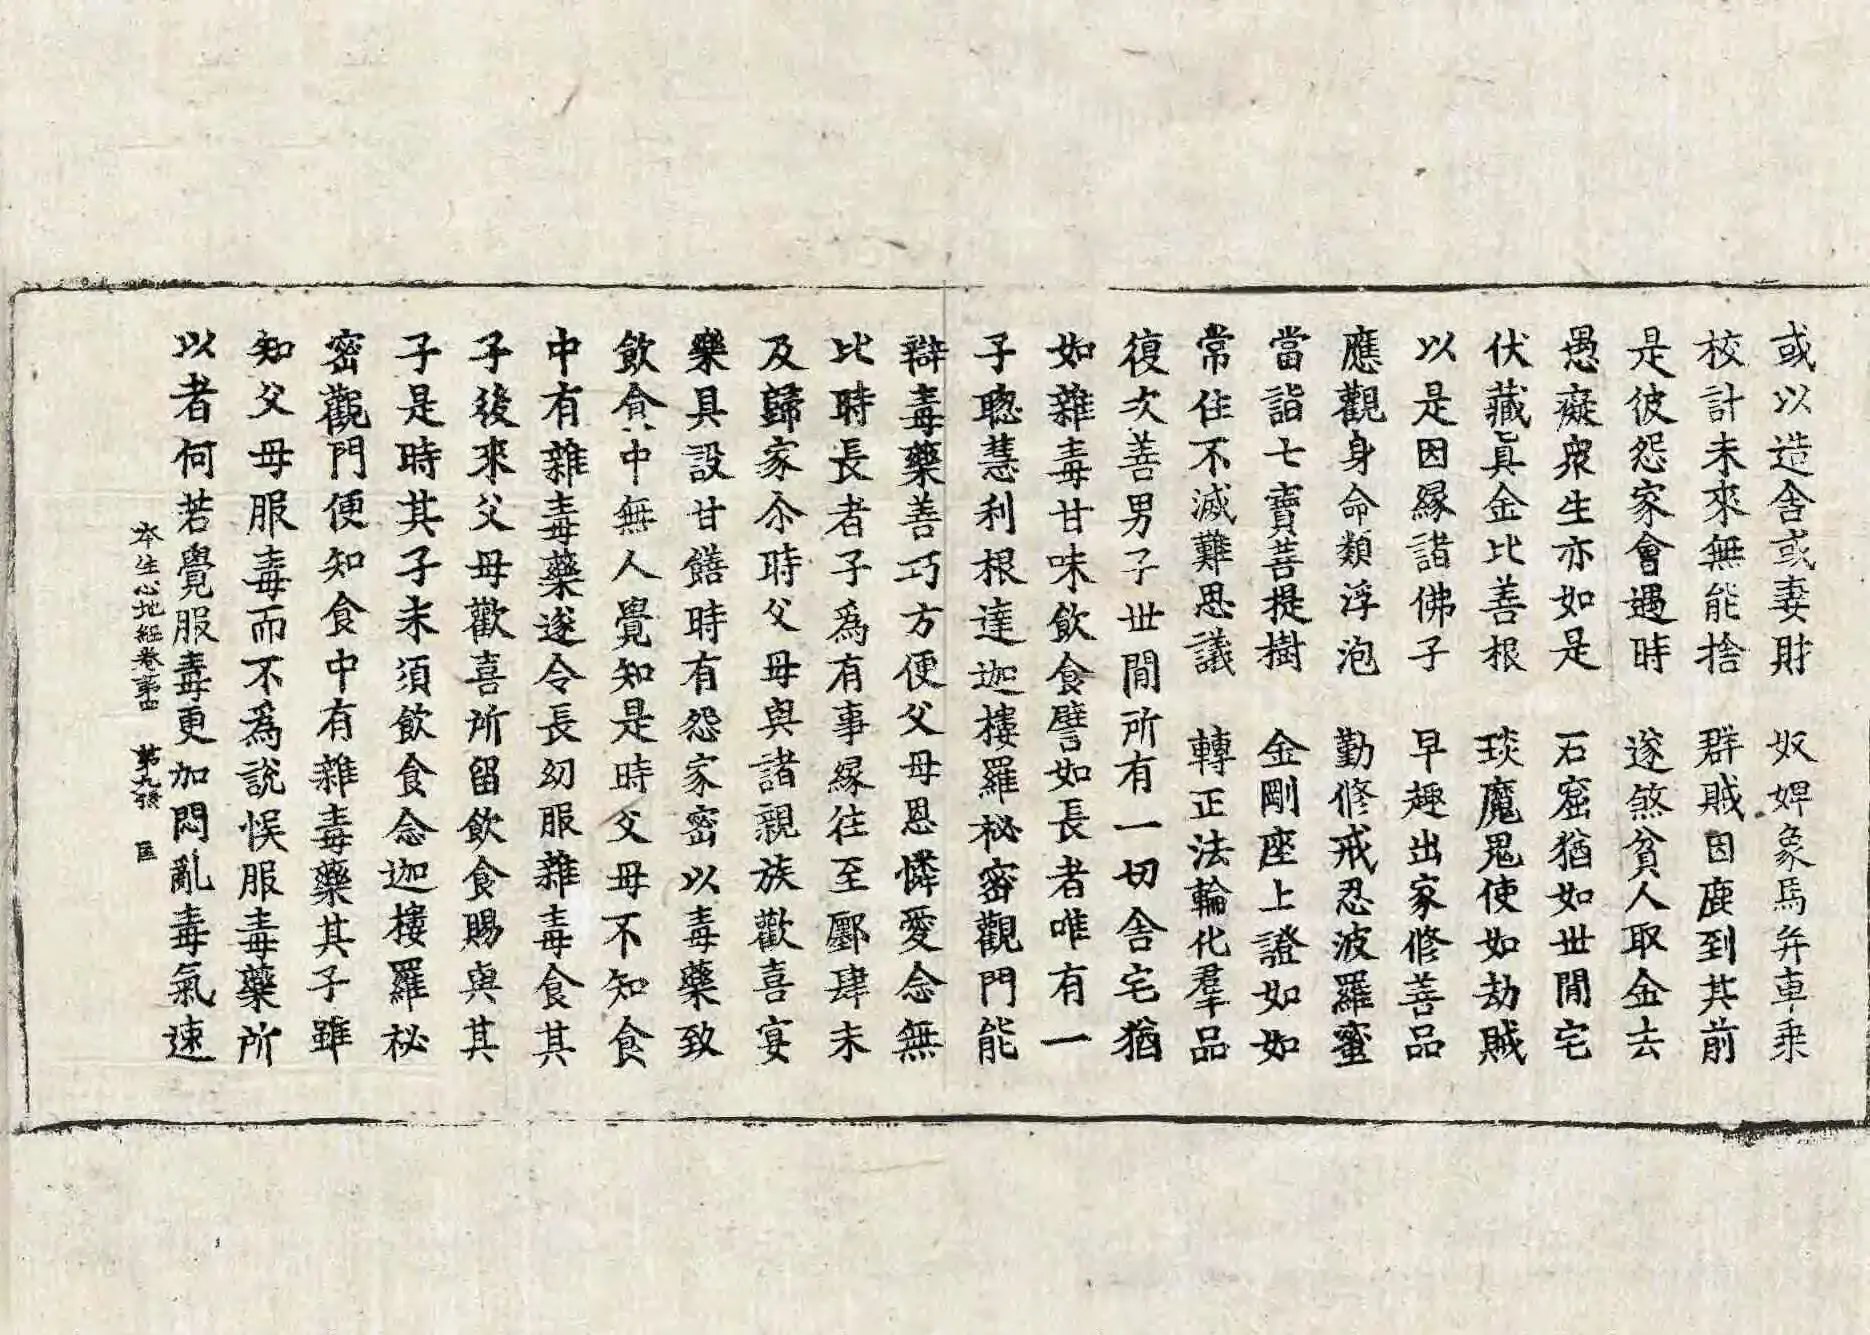 或以造舍或妻財　奴婢象馬弁車乗
校計未來無能捨　群賊因鹿到其前
是彼怨家會遇時　遂煞貧人取金去
愚癡衆生亦如是　石窟猶如世間宅
伏藏真金比善根　琰魔鬼使如劫賊
以是因縁諸佛子　早趣出家修善品
應觀身命類浮泡　勤修戒忍波羅蜜
當詣七寶菩提樹　金剛座上證如如
常住不滅難思議　轉正法輪化羣品
復次善男子世間所有一切舎宅猶
如雜毒甘味飲食譬如長者唯有一
子聰慧利根達迦樓羅秘密觀門能
辯毒藥善巧方便父母恩憐愛念無
比時長者子為有事縁往至鄽肆未
及歸家尒時父母與諸親族歡喜宴
樂具設甘饍時有怨家密以毒藥致
飲食中無人覺知是時父母不知食
中有雜毒藥遂令長幼服雜毒食其
子後來父母歡喜所留飲食賜與其
子是時其子未須飲食念迦樓羅秘
密觀門便知食中有雜毒藥其子雖
知父母服毒而不為說悮服毒藥所
以者何若覺服毒更加悶亂毒氣速
本生心地經卷第四　第九張　匡